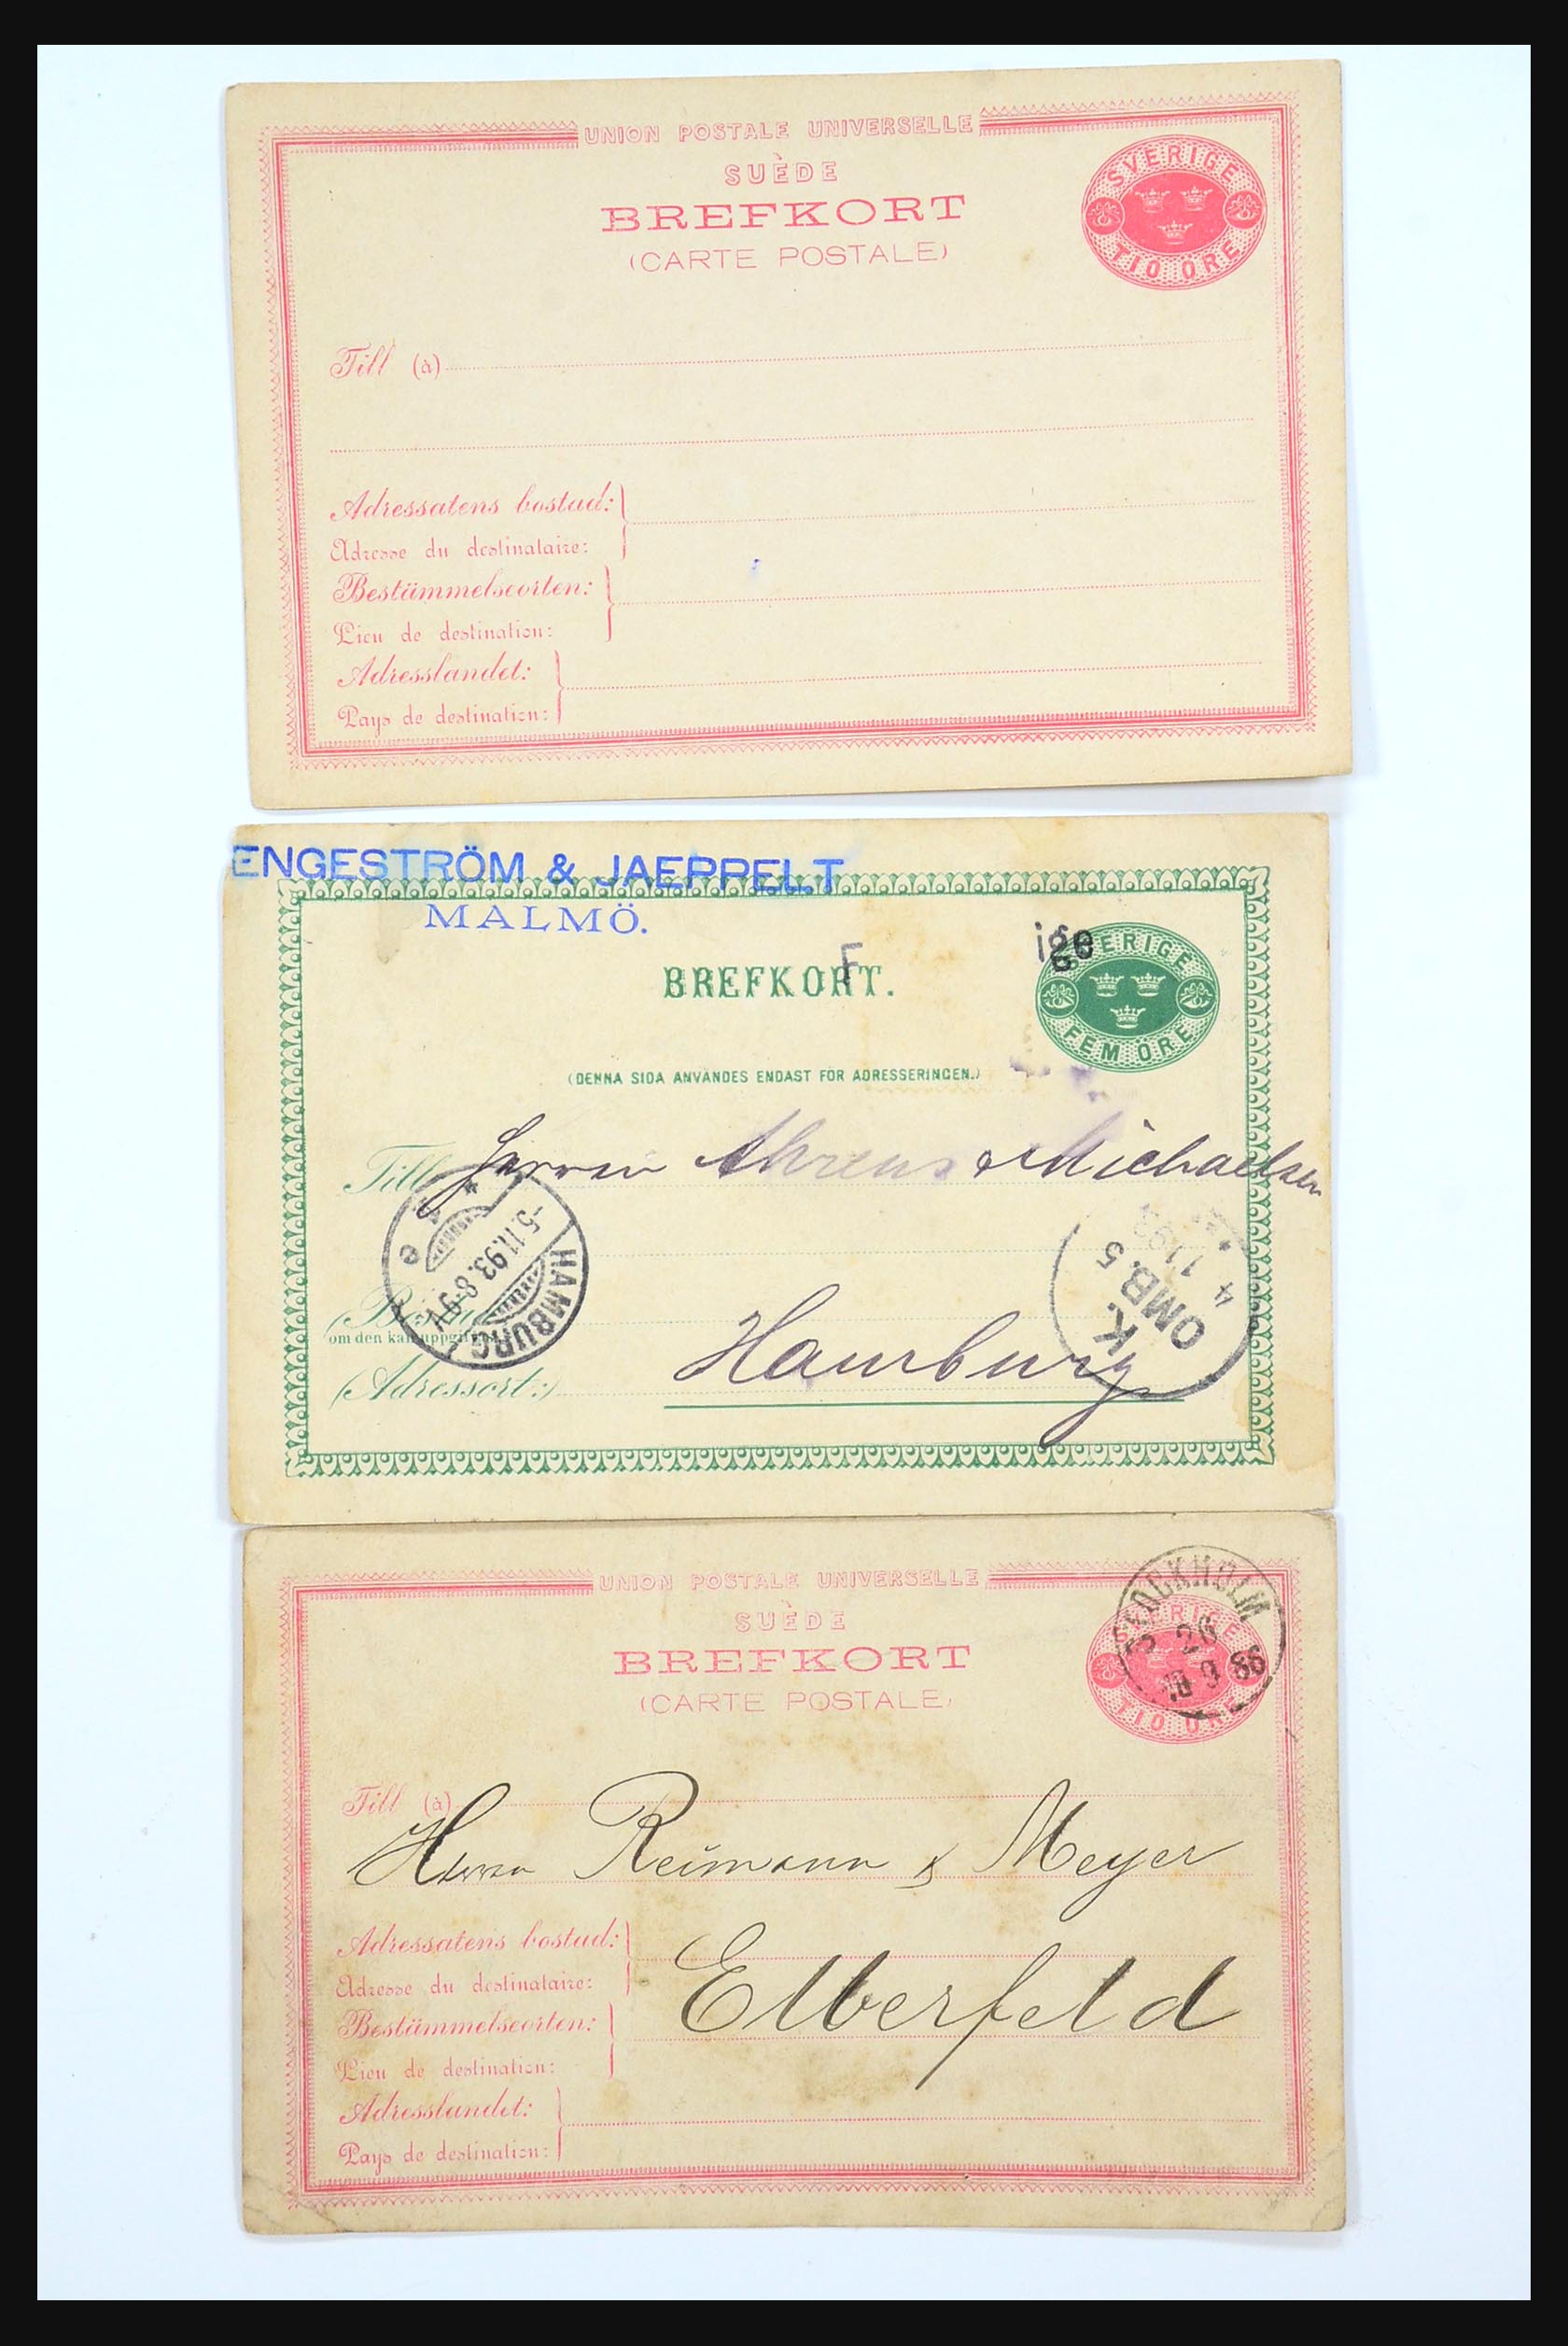 UNION POSTALE UNIVERSELLE
SUÈDE
BREFKORT
(CARTE POSTALE)
SVERIGE
TIO ÖRE
Till (à)
Adressatens bostad:
Adresse du destinataire:
Bestämmelseorten:
Lieu de destination:
Adresslandet:
Pays de destination:
ENGESTRÖM & JAEPPELT
MALMÖ.
F
ige
BREFKORT.
SVERIGE
FEM ÖRE
(DENNA SIDA ANVÄNDES ENDAST FÖR ADRESSERINGEN.)
Till
Herren Ahrens & Michaelsen
HAMBURG
-5.11.93.8-9V
K.
OMB. 5
4 11 93
om den kan uppgifvas
(Adressort:)
Hamburg
UNION POSTALE UNIVERSELLE
SUÈDE
BREFKORT
(CARTE POSTALE)
SVERIGE
TIO ÖRE
STOCKHOLM
26
18 9 86
Till (à)
Herren Reimann & Meyer
Adressatens bostad:
Adresse du destinataire:
Elberfeld
Bestämmelseorten:
Lieu de destination:
Adresslandet:
Pays de destination: